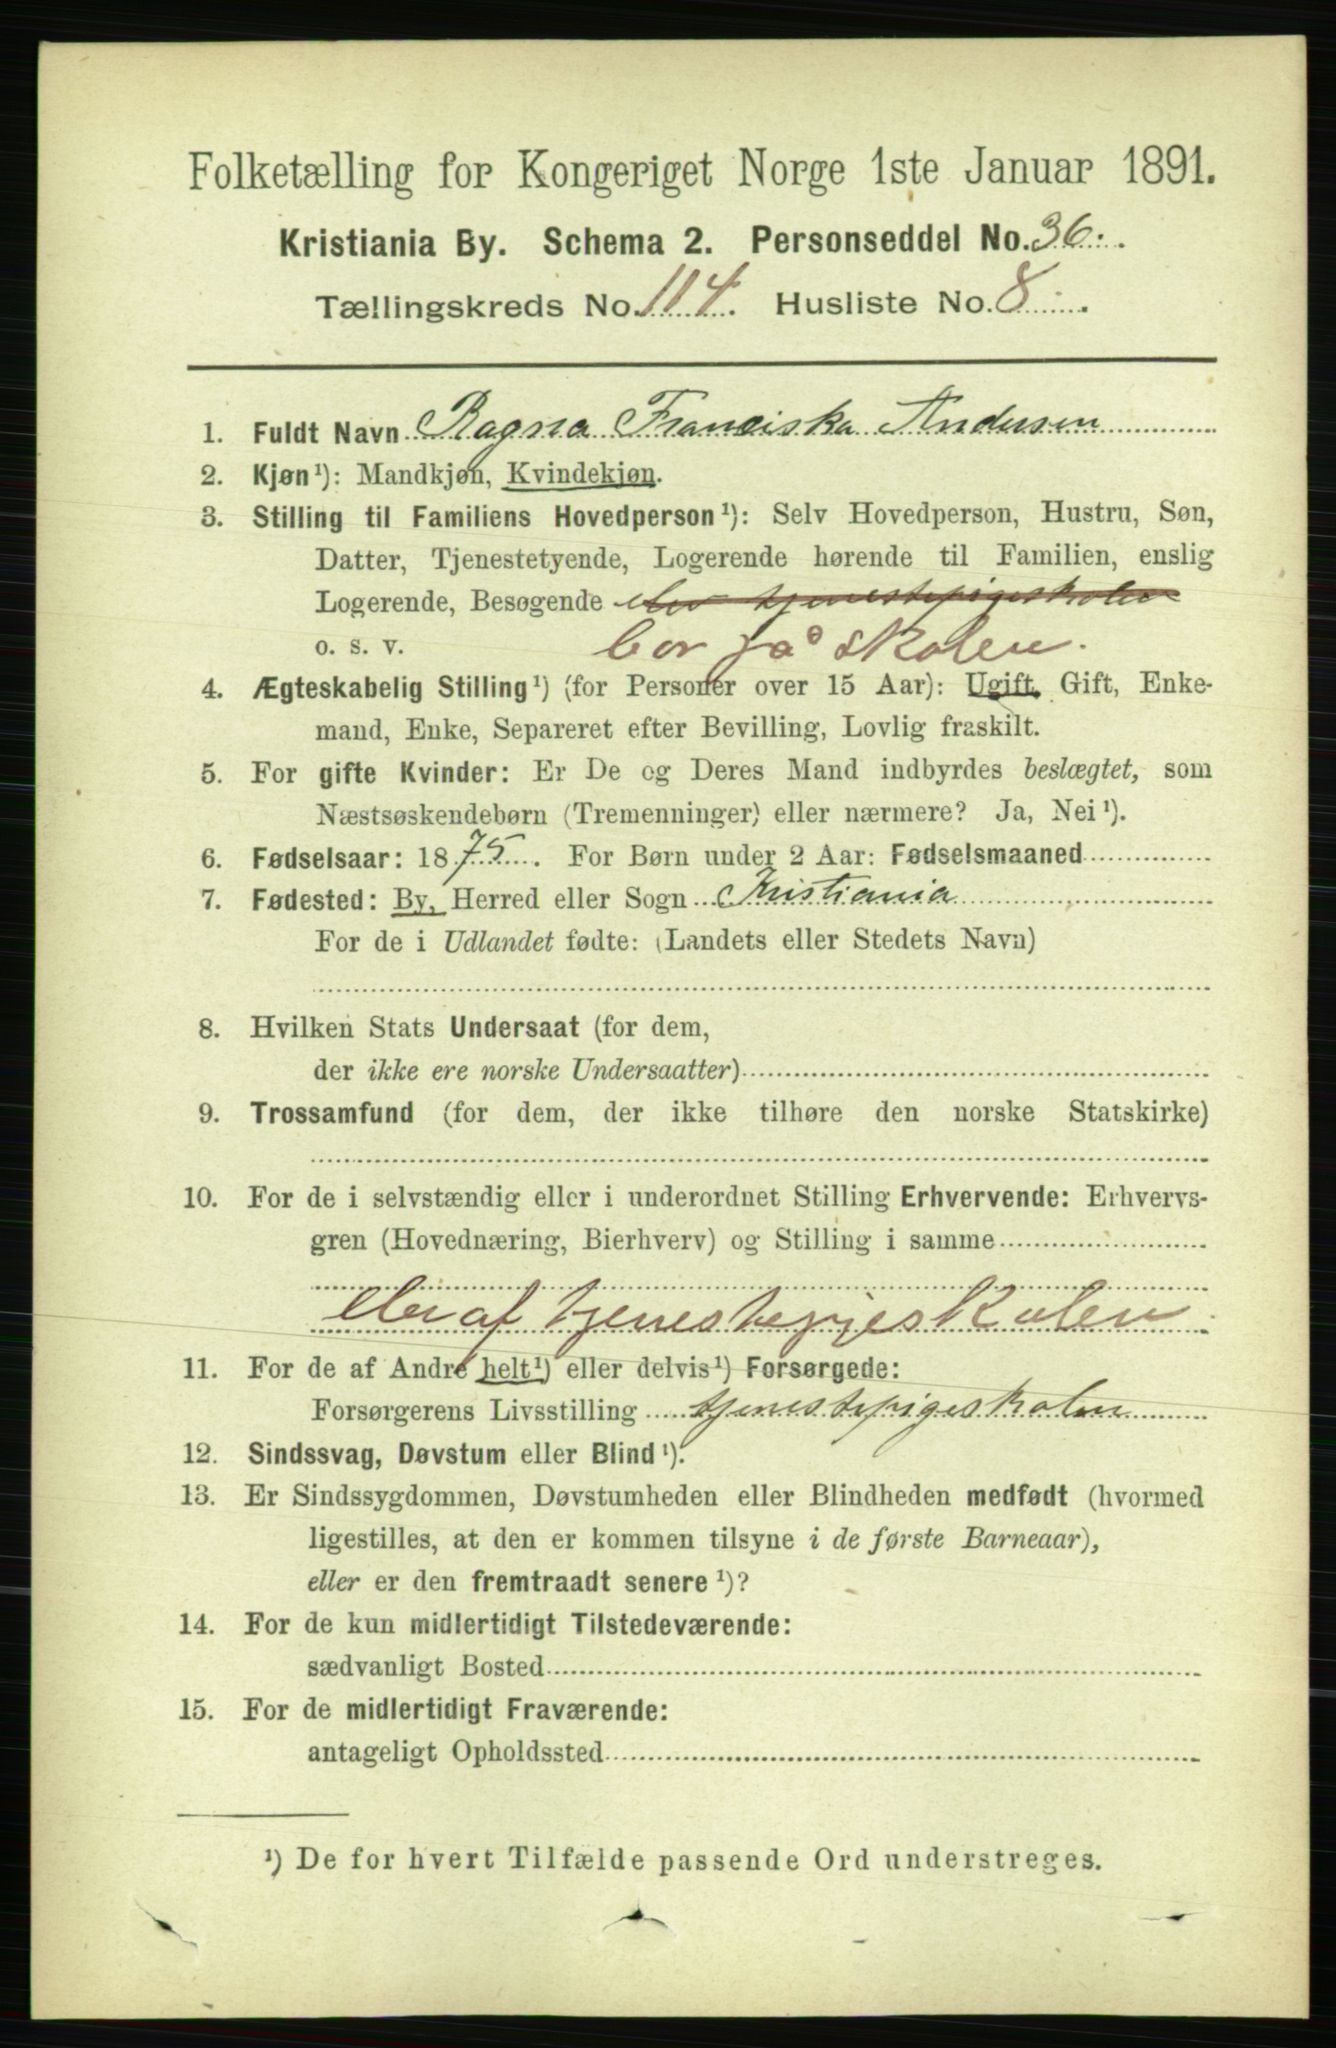 Folketælling for Kongeriget Norge 1ste Januar 1891.
Kristiania By. Schema 2. Personseddel No. 36.
Tællingskreds No. 114. Husliste No. 8.
1. Fuldt Navn Ragna Franciska Andersen
2. Kjøn¹): Mandkjøn, Kvindekjøn.
3. Stilling til Familiens Hovedperson¹): Selv Hovedperson, Hustru, Søn,
Datter, Tjenestetyende, Logerende hørende til Familien, enslig
Logerende, Besøgende elev tjenestepigeskolen
o. s. v. bor på skolen.
4. Ægteskabelig Stilling¹) (for Personer over 15 Aar): Ugift, Gift, Enke-
mand, Enke, Separeret efter Bevilling, Lovlig fraskilt.
5. For gifte Kvinder: Er De og Deres Mand indbyrdes beslægtet, som
Næstsøskendebørn (Tremenninger) eller nærmere? Ja, Nei¹).
6. Fødselsaar: 1875. For Børn under 2 Aar: Fødselsmaaned
7. Fødested: By, Herred eller Sogn Kristiania
For de i Udlandet fødte: (Landets eller Stedets Navn)
8. Hvilken Stats Undersaat (for dem,
der ikke ere norske Undersaatter)
9. Trossamfund (for dem, der ikke tilhøre den norske Statskirke)
10. For de i selvstændig eller i underordnet Stilling Erhvervende: Erhvervs-
gren (Hovednæring, Bierhverv) og Stilling i samme
Elev af tjenestepigeskolen
11. For de af Andre helt¹) eller delvis¹) Forsørgede:
Forsørgerens Livsstilling tjenestepigeskolen
12. Sindssvag, Døvstum eller Blind¹).
13. Er Sindssygdommen, Døvstumheden eller Blindheden medfødt (hvormed
ligestilles, at den er kommen tilsyne i de første Barneaar),
eller er den fremtraadt senere¹)?
14. For de kun midlertidigt Tilstedeværende:
sædvanligt Bosted
15. For de midlertidigt Fraværende:
antageligt Opholdssted
¹) De for hvert Tilfælde passende Ord understreges.